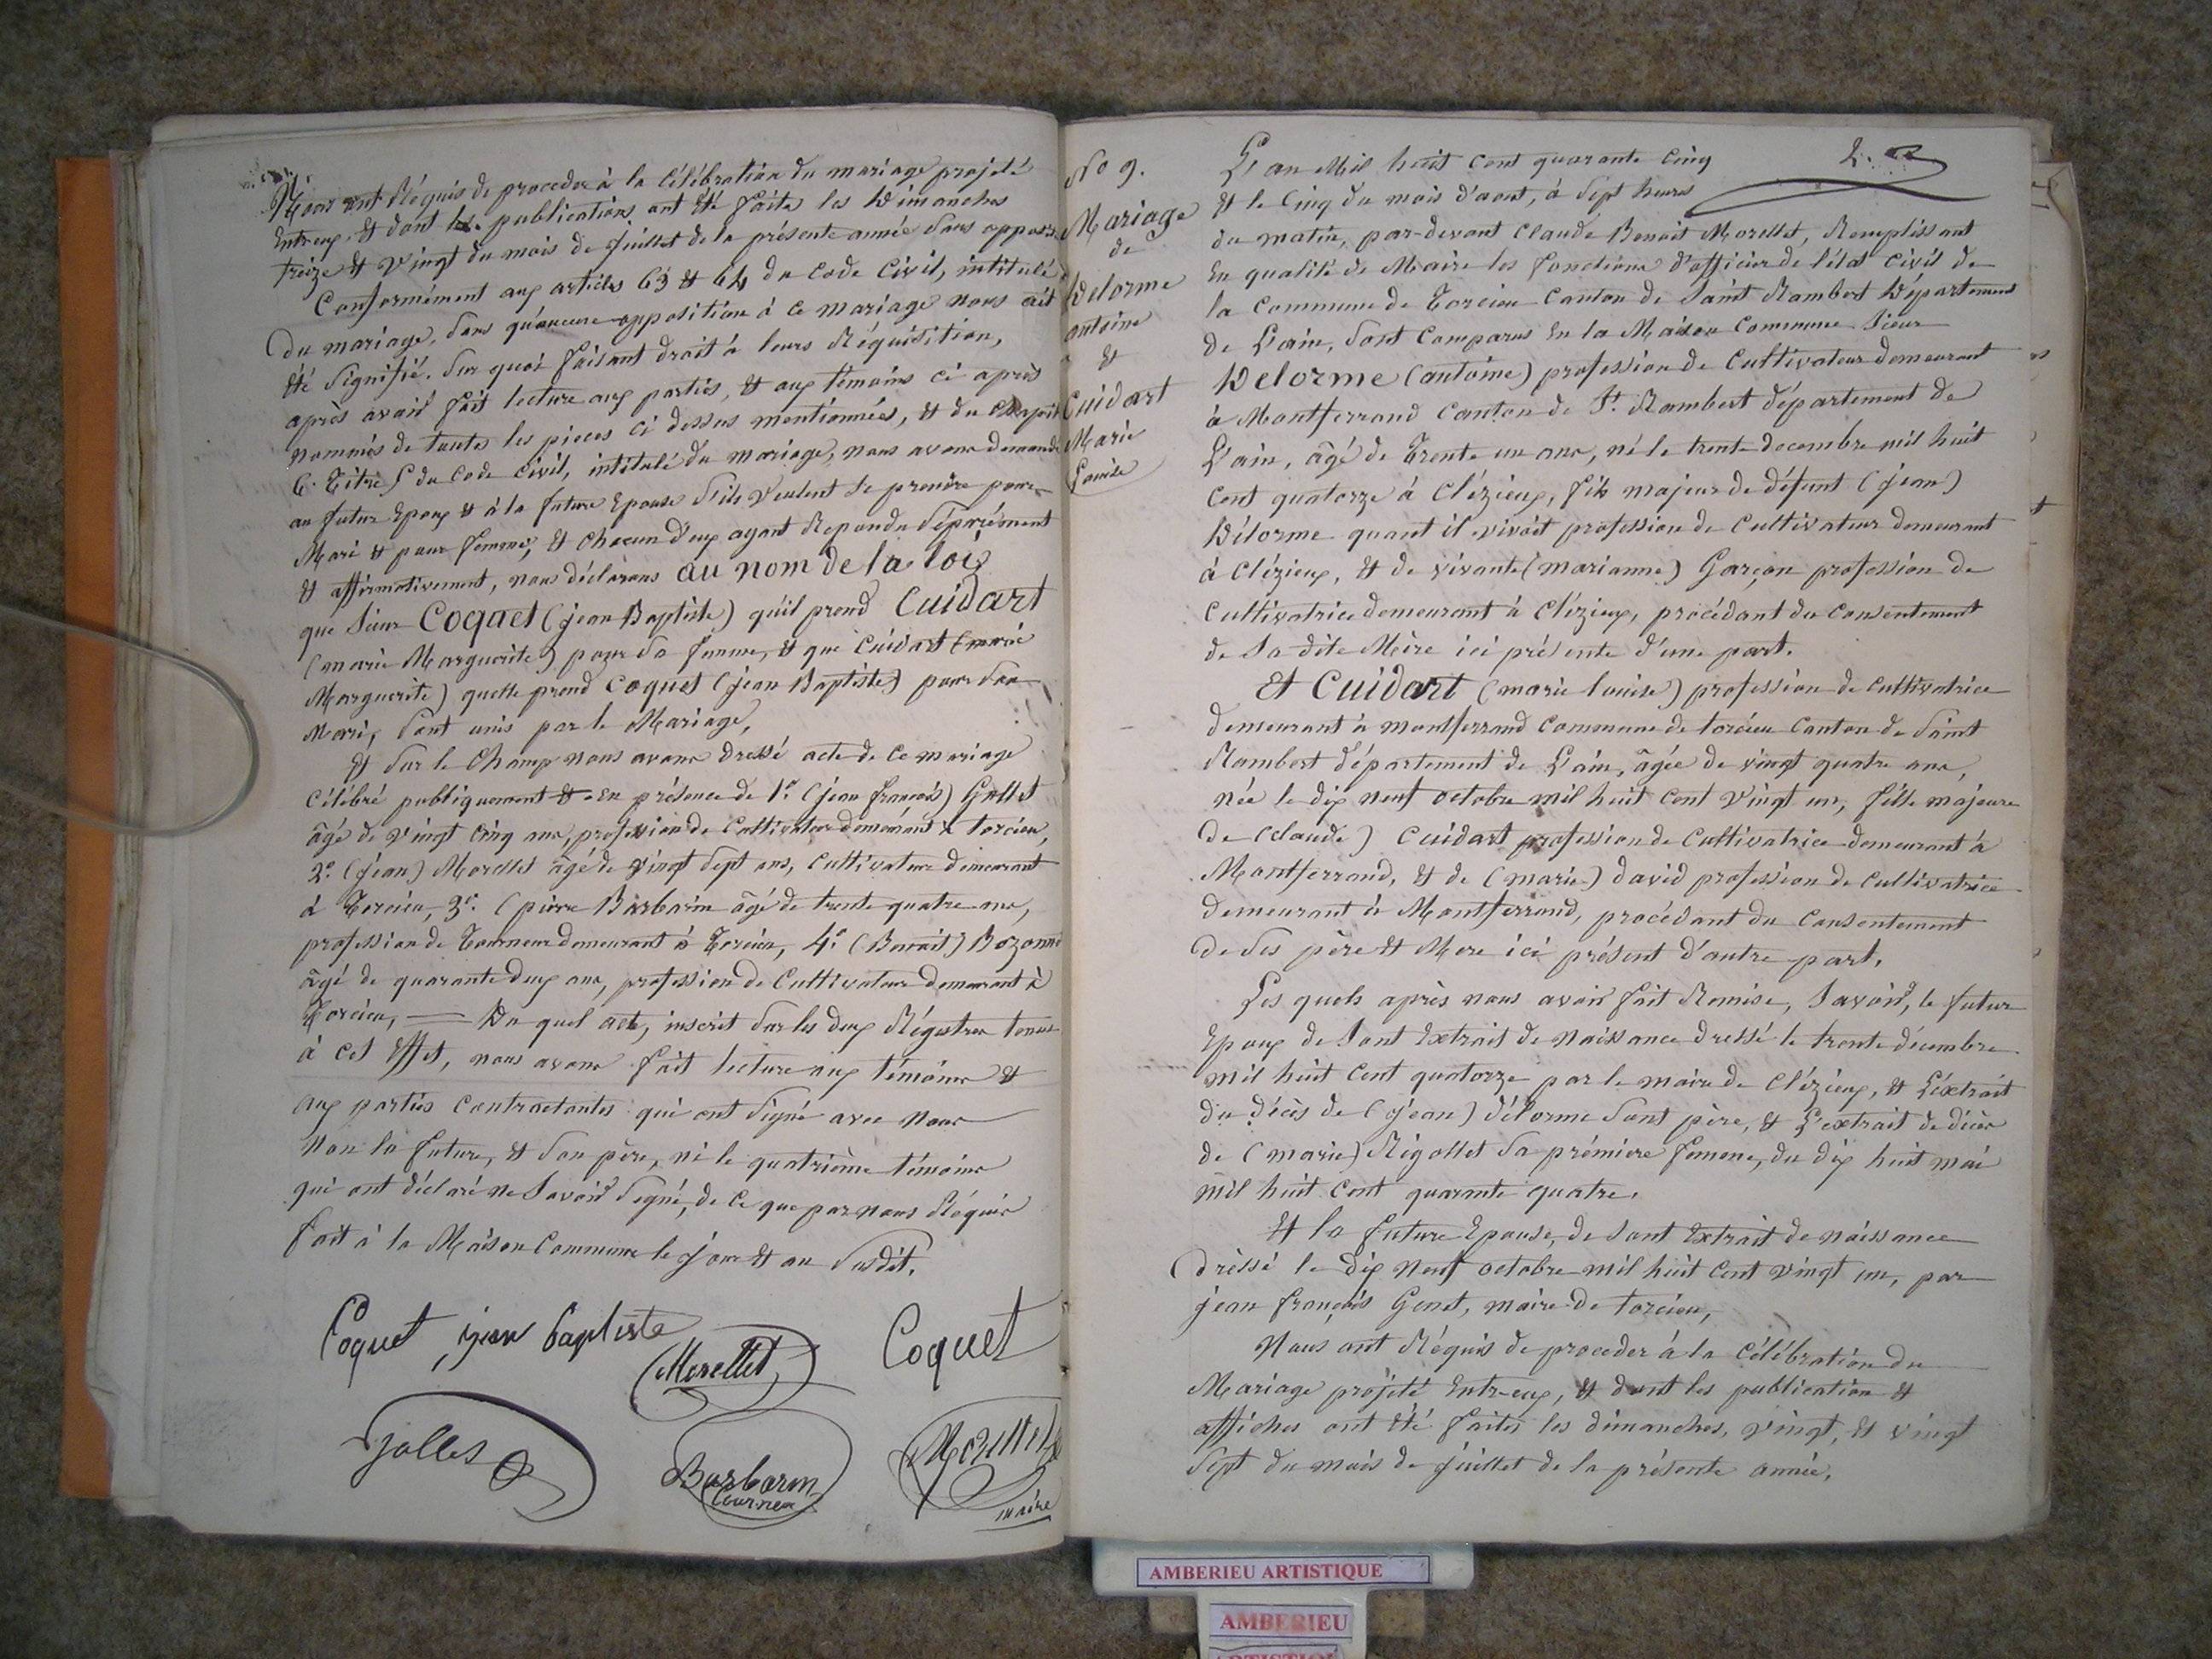 Nous ont Réquis de proceder à la Célébration du mariage projeté
Entreux & dont les publications ont Eté faites les Dimanches
treize & vingt du mois de Juillet de la présente année sans opposi
Conformément aux articles 63 & 64 du Code Civil, intitulé
Du mariage, sans qu'aucune opposition à ce mariage nous ait
été signifié. Sur quoi faisant droit à leurs Réquisition,
après avoir fait lecture aux parties, & aux témoins ci après
nommés de toutes les pieces ci dessus mentionnées, & du Chapitre
6. Titre 5 du Code Civil, intitulé du mariage, nous avons demandé
au futur Epoux & à la future Epouse s'ils veulent se prendre pour
Mari & pour femme, & chacun d'eux ayant Repondu séparément
& affirmativement, nous déclarons au nom de la loi
que sieur Coquet (jean Baptiste) qu'il prend Cuidart
(marie Marguerite) pour sa femme, & que Cuidart (marie
Marguerite) quelle prend Coquet (jean Baptiste) pour son
Mari, sont unis par le Mariage,
& sur le champ nous avons dressé acte de ce mariage
Célébré publiquement & En présence de 1° (jean françois) Gallet
âgé de vingt cinq ans, profession de Cultivateur demeurant à torcieu,
2° (jean) Morellet âgé de vingt sept ans, Cultivateur demeurant
à Torcieu, 3° (pierre Barbarin âgé de trente quatre ans,
profession de Tourneur demeurant à Torcieu, 4° (Benoit) Bozonne
âgé de quarante deux ans, profession de Cultivateur demeurant à
Torcieu, — Du quel acte, inscrit sur les deux Régistres tenus
à cet Effet, nous avons fait lecture aux témoins &
aux parties Contractantes qui ont signé avec nous
Non la future, & son père, ni le quatrième témoins
qui ont déclaré ne savoir signé, de ce que par nous Réquis
fait à la Maison Commune le jour & an susdit.
Coquet jean baptiste Coquet
Morellet
Gallet Barbarin Morellet
tourneur maire
No 9.
Mariage
de
Delorme
antoine
&
Cuidart
Marie
Louise
L'an Mil huit cent quarante Cinq
& le Cinq du mois d'aout, à sept heures
du matin, par-devant Claude Benoit Morellet, Remplissant
En qualité de Maire les fonctions d'officier de l'état Civil de
la Commune de Torcieu Canton de Saint Rambert Département
de L'ain, sont Comparus En la Maison Commune Sieur
Delorme (antoine) profession de Cultivateur demeurant
à Montferrand Canton de St. Rambert département de
L'ain, âgé de Trente un ans, né le trente decembre mil huit
cent quatorze à Clézieux, fils majeur de défunt (jean)
Délorme quant il vivait profession de Cultivateur demeurant
à Clézieux, & de vivante (marianne) Garçon profession de
Cultivatrice demeurant à Clézieux, procédant du Consentement
de sa dite Mère ici présente d'une part.
Et Cuidart (marie louise) profession de cultivatrice
demeurant à montferrand Commune de torcieu Canton de Saint
Rambert département de L'ain, âgée de vingt quatre ans,
née le dix neuf octobre mil huit cent vingt un, fille majeure
de (claude) Cuidart profession de Cultivatrice demeurant à
Montferrand, & de (marie) david profession de Cultivatrice
demeurant à Montferrand, procédant du Consentement
de ses père & Mere ici présent d'autre part.
Les quels après nous avoir fait Remise, Savoir, le futur
Epoux de sont Extrait de Naissance dressé le trente décembre
mil huit cent quatorze par le maire de Clézieux, & L'extrait
du décès de (jean) délorme sont père, & L'extrait de décès
de (marie) Rigollet sa prémiere femme, du dix huit mai
mil huit cent quarante quatre.
Et la future Epouse, de sont Extrait de naissance
Dressé le dix neuf octobre mil huit cent vingt un, par
jean françois Genet, maire de torcieu,
Nous ont Réquis de proceder à la Célébration du
Mariage projeté Entr-eux, & dont les publication &
affiches ont Eté faites les dimanches, vingt, & vingt
sept du mois de juillet de la présente année.
AMBERIEU ARTISTIQUE
AMBERIEU
ARTISTIQUE